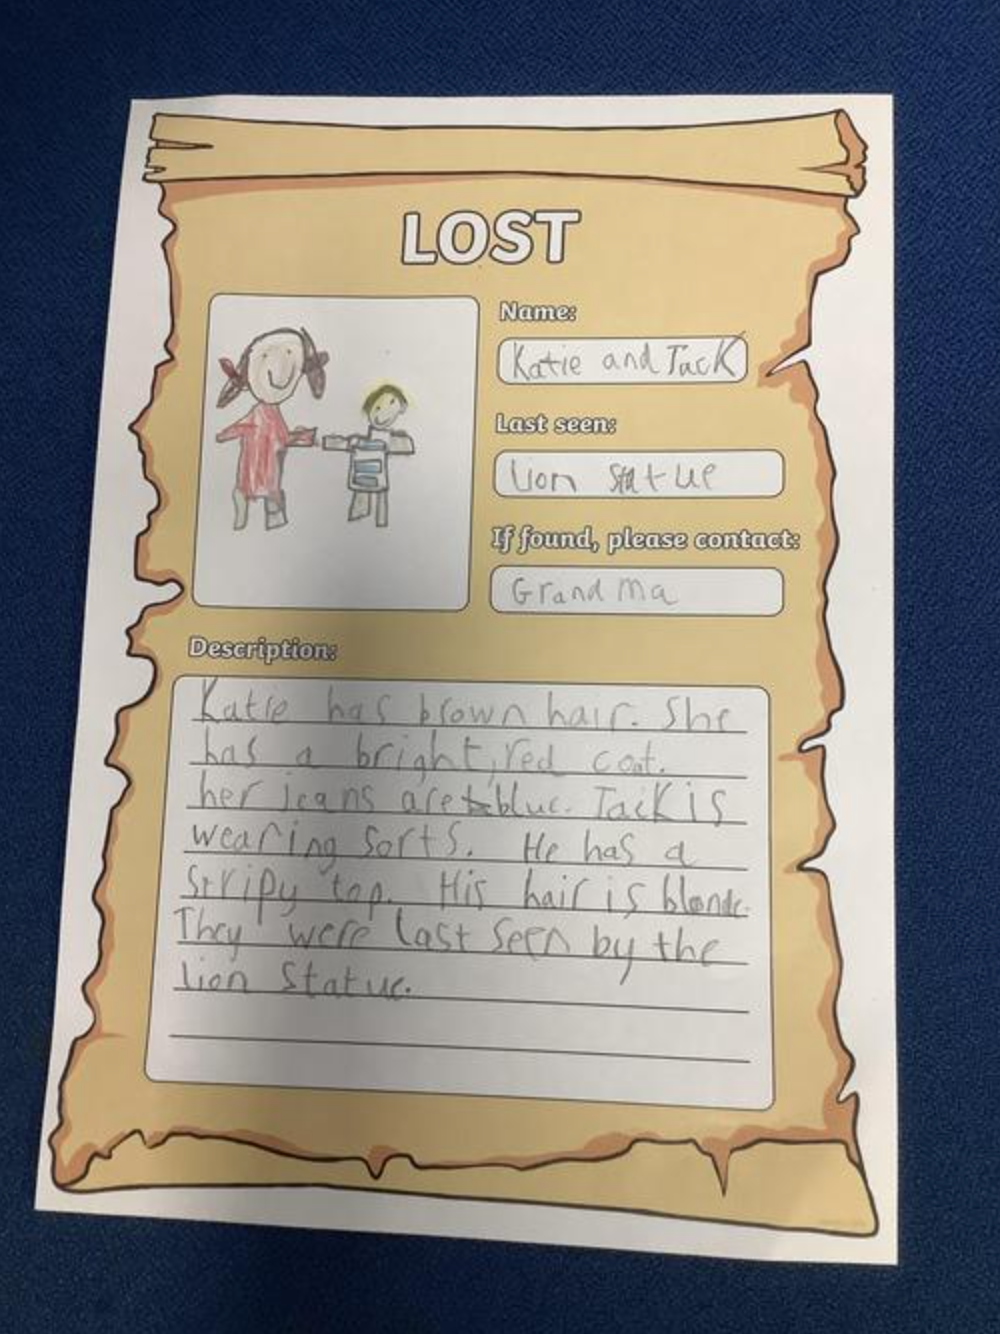 LOST
Name:
Katie and Jack
Last seen:
lion statue
If found, please contact:
Grand Ma
Description:
Katie has brown hair. She
has a bright, red coat.
her jeans are blue. Jack is
wearing sorts. He has a
stripy top. His hair is blonde.
They were last seen by the
lion statue.